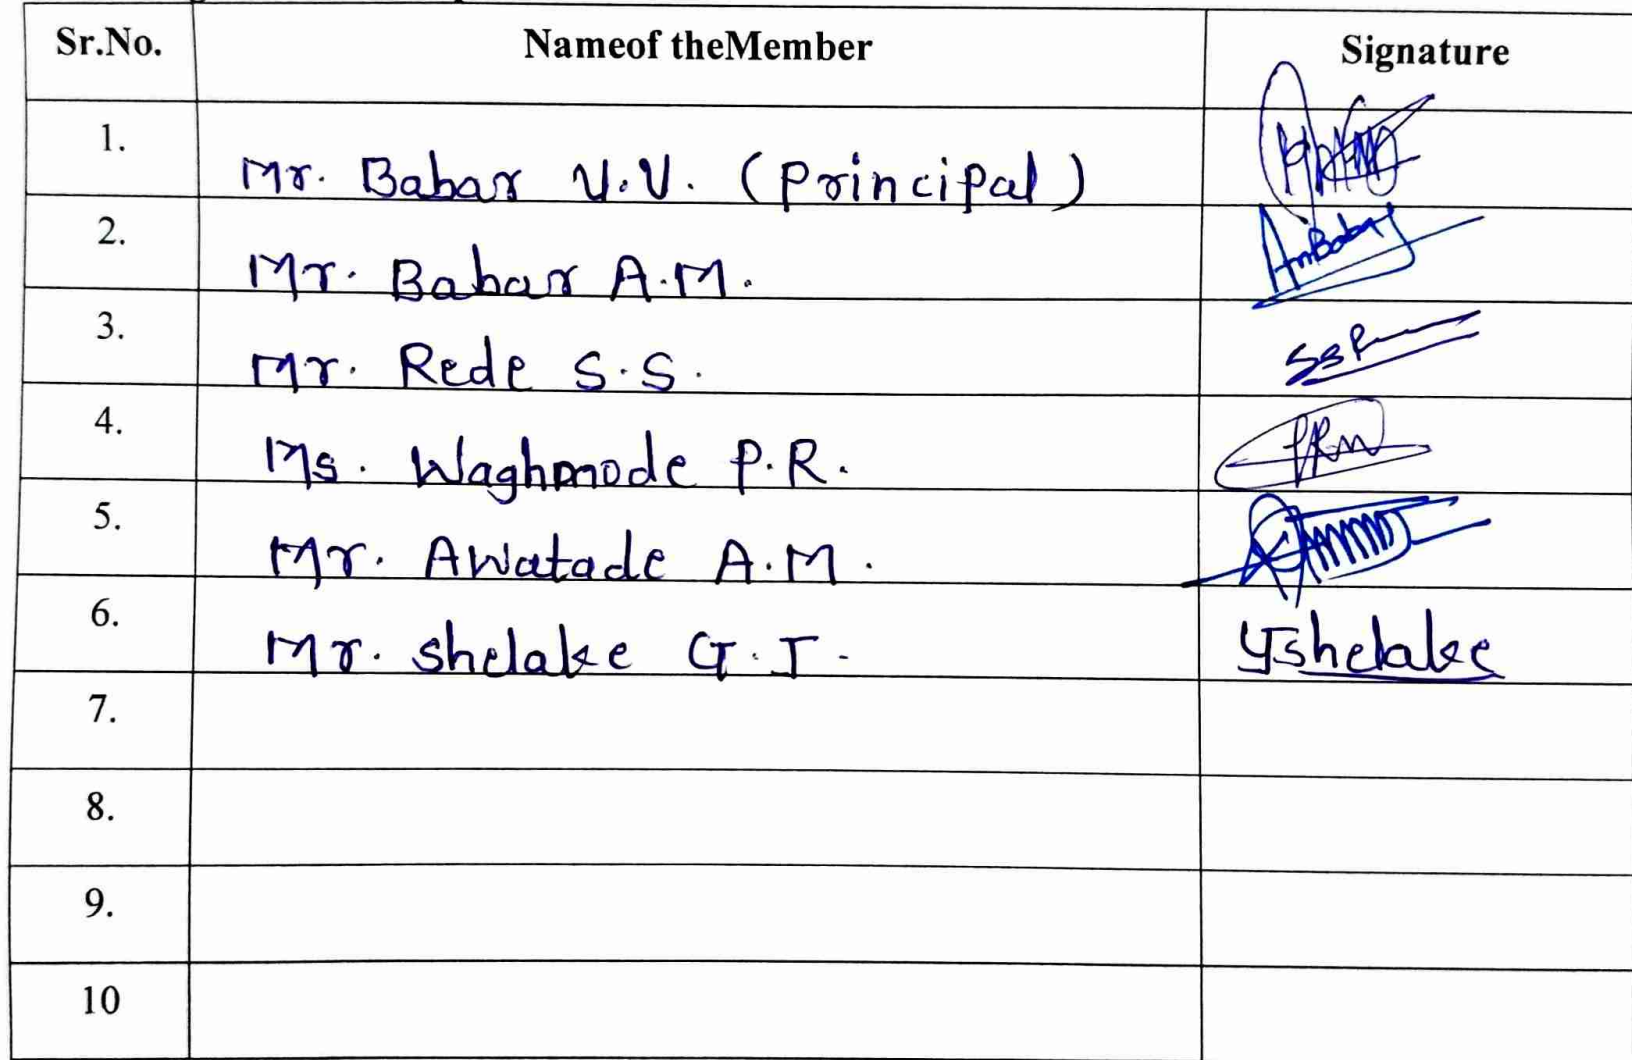 Sr.No. Nameof theMember Signature
1. Mr. Babar V.V. (Principal)
2. Mr. Babar A.M. AmBabar
3. Mr. Rede S.S. SSR
4. Ms. Waghmode P.R.
5. Mr. Awatade A.M.
6. Mr. shelake G.J. Yshelake
7.
8.
9.
10